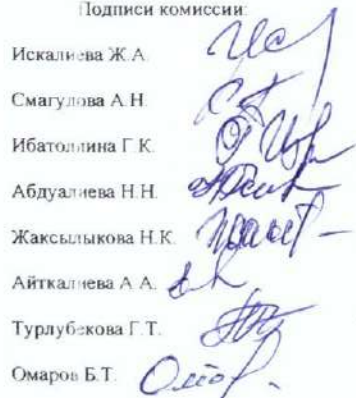 Подписи комиссии:
Искалиева Ж.А.
Смагулова А.Н.
Ибатоллина Г.К.
Абдуалиева Н.Н.
Жаксылыкова Н.К.
Айткалиева А.А.
Турлубекова Г.Т.
Омаров Б.Т.